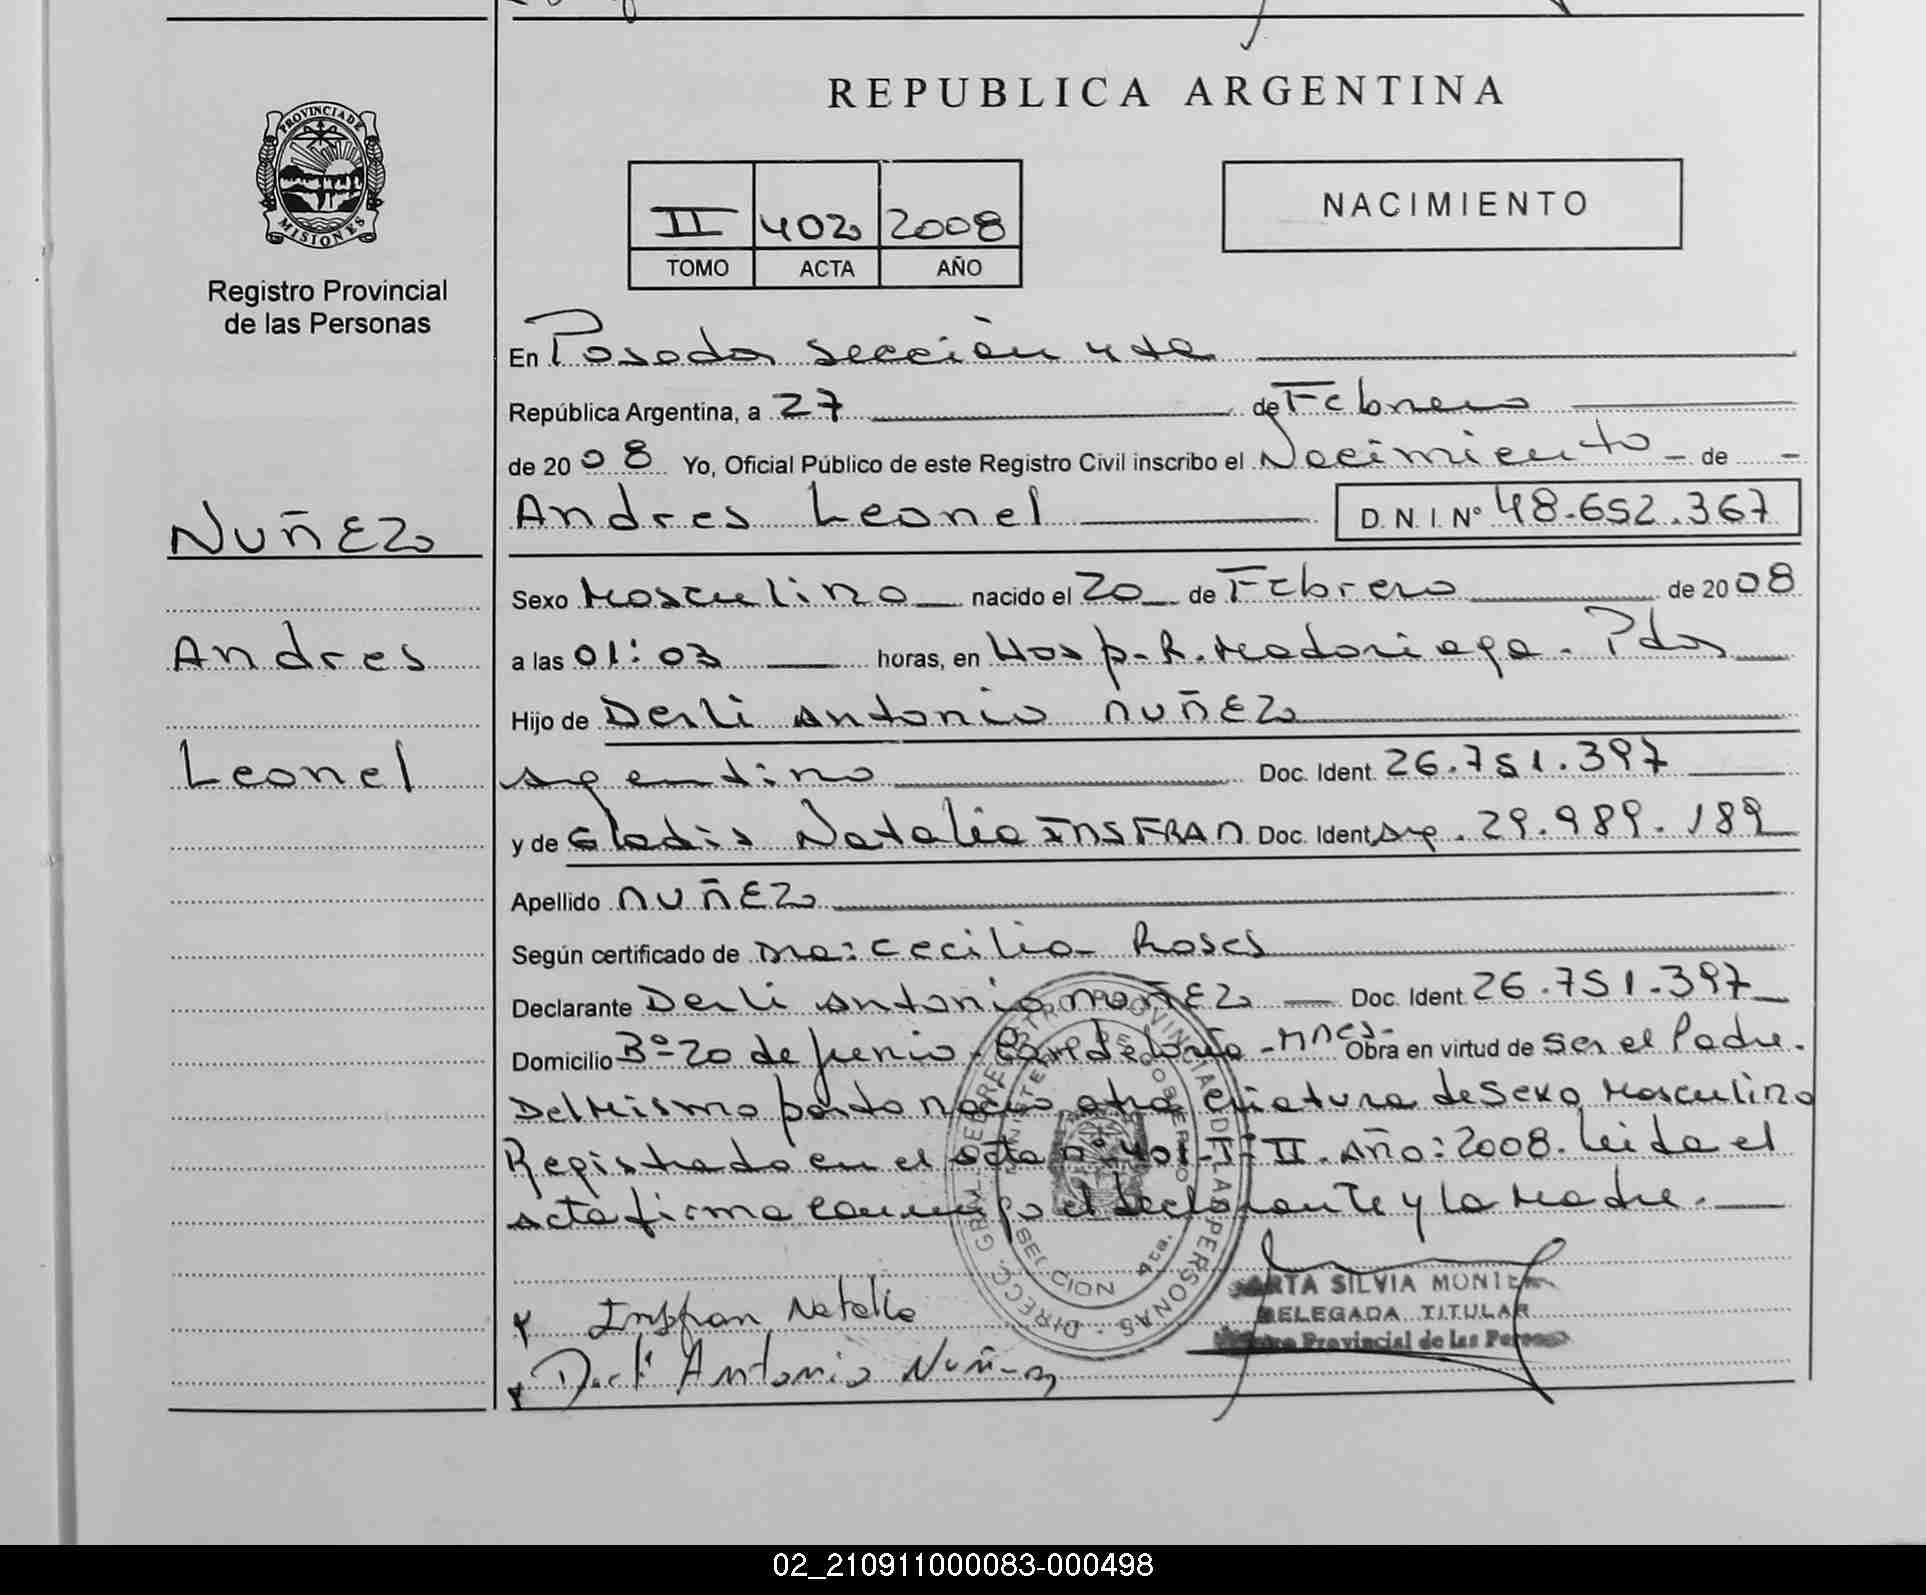 REPUBLICA ARGENTINA
PROVINCIA DE
MISIONES
Registro Provincial
de las Personas
II 402 2008
TOMO ACTA AÑO
NACIMIENTO
En Posadas sección 4ta
República Argentina, a 27 de Febrero
de 2008 Yo, Oficial Público de este Registro Civil inscribo el Nacimiento - de -
Andres Leonel D. N. I. Nº 48.652.367
NUÑEZ
Andres
Leonel
Sexo Masculino nacido el 20 de Febrero de 2008
a las 01:03 horas, en Hosp. R. Madariaga. Pdas
Hijo de Derli Antonio NUÑEZ
Argentino Doc. Ident. 26.751.397
y de Gladis Natalia INSFRAN Doc. Ident. Arg. 29.989.189
Apellido NUÑEZ
Según certificado de Dra: Cecilia Roses
Declarante Derli Antonio NUÑEZ Doc. Ident. 26.751.397
Domicilio Bº 20 de junio - Candelaria - Mnes. Obra en virtud de ser el Padre.
Del mismo parto nacio otra criatura de sexo Masculino
Registrado en el acta nº 401-Tº II. Año: 2008. Leida el
acta firma conmigo el declarante y la Madre.
DIRECC. GRAL. DE REGISTRO PROVINCIAL DE LAS PERSONAS
MINISTERIO DE GOBIERNO
SECCION 4ta.
Insfran Natalia
Derli Antonio Nuñez
SILVIA
DELEGADA TITULAR
Provincial de las
02_210911000083-000498